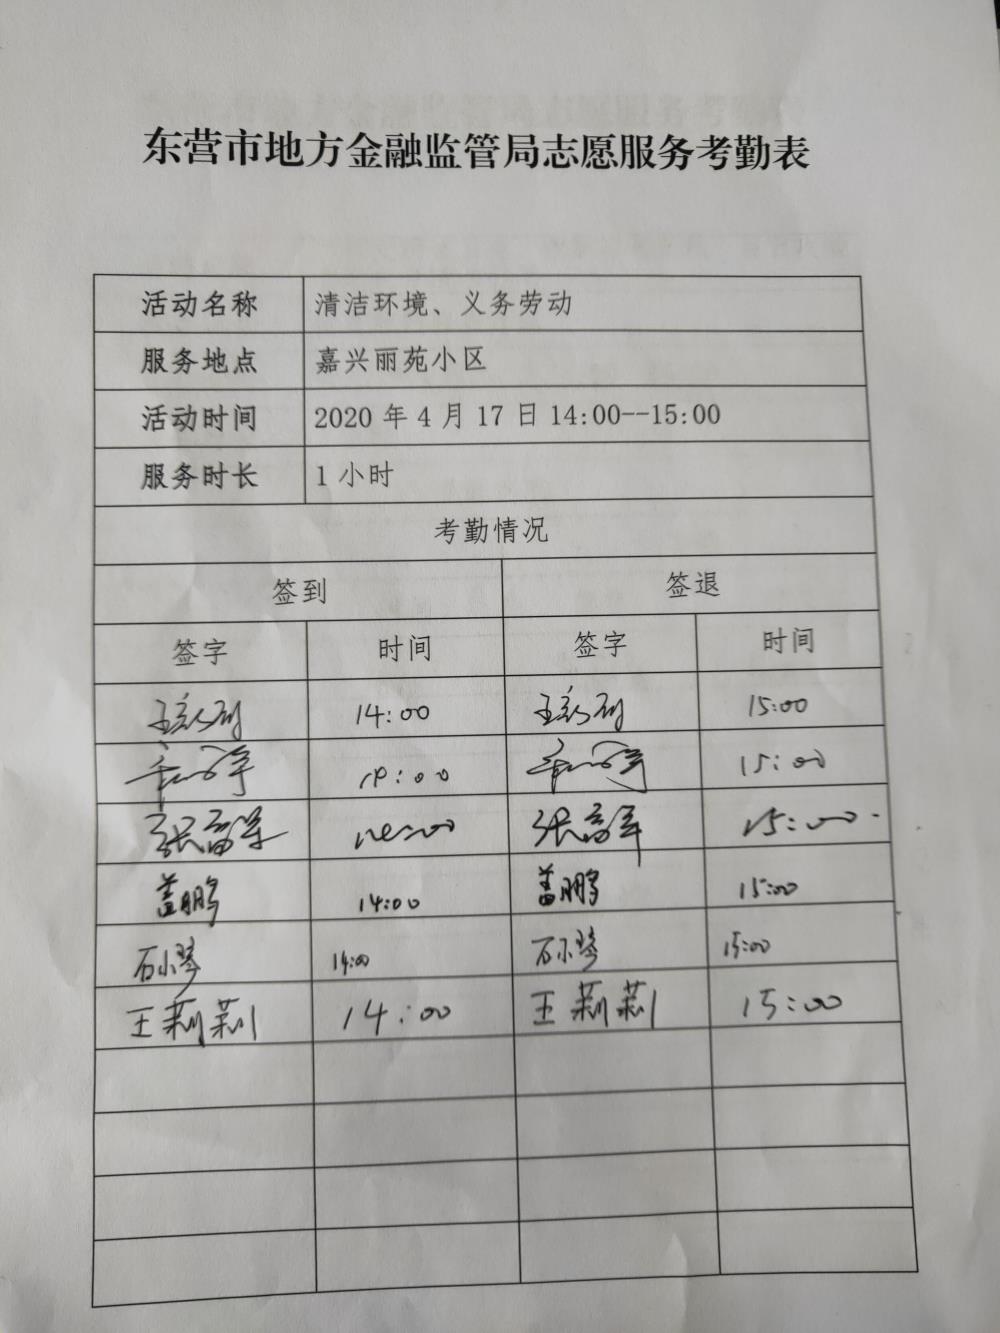 东营市地方金融监管局志愿服务考勤表
活动名称 清洁环境、义务劳动
服务地点 嘉兴丽苑小区
活动时间 2020 年 4 月 17 日 14:00--15:00
服务时长 1 小时
考勤情况
签到 签退
签字 时间 签字 时间
14:00 15:00
14:00 15:00
张富军 14:00 张富军 15:00
盖鹏 14:00 盖鹏 15:00
石小琴 14:00 石小琴 15:00
王莉莉 14:00 王莉莉 15:00